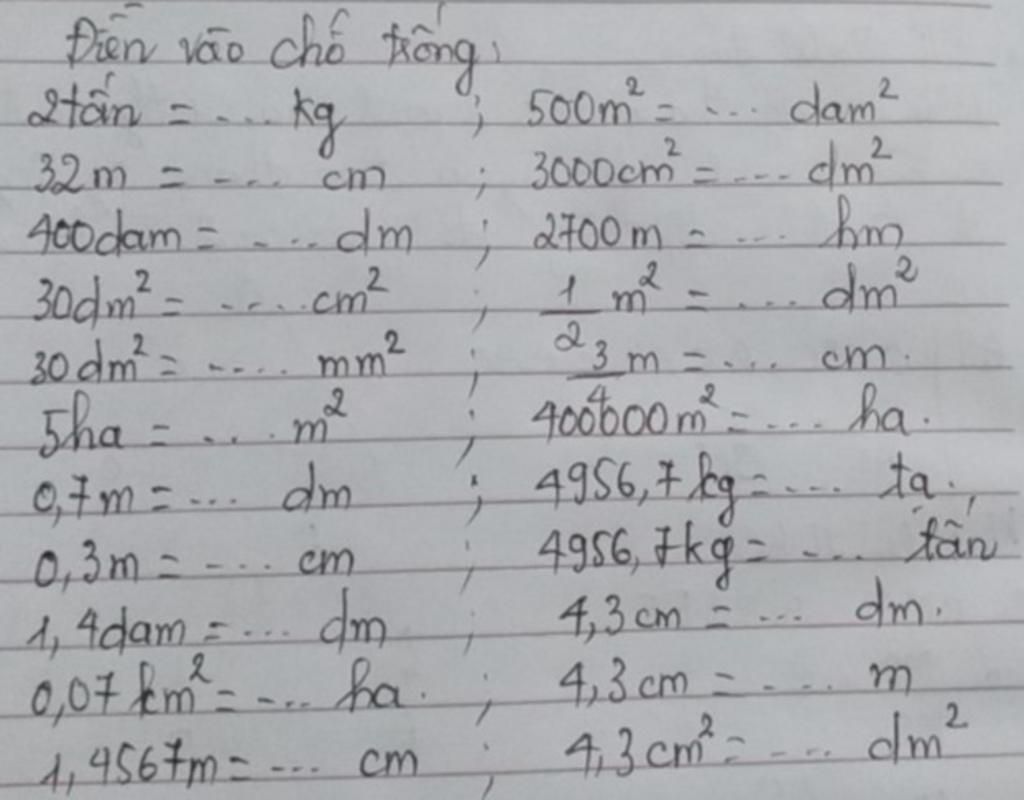 Điền vào chỗ trống:
2tấn = ... kg ; 500m² = ... dam²
32m = .... cm ; 3000cm² = .... dm²
400dam = .... dm ; 2700m = ... hm
30dm² = .... cm² ; 1/2 m² = ... dm²
30dm² = .... mm² ; 3/4 m = ... cm.
5ha = .... m² ; 400000m² = ... ha.
0,7m = ... dm ; 4956,7kg = .... tạ.
0,3m = .... cm ; 4956,7kg = .... tấn
1,4dam = ... dm ; 4,3cm = ... dm.
0,07km² = .... ha. ; 4,3cm = .... m
1,4567m = ... cm ; 4,3cm² = .... dm²